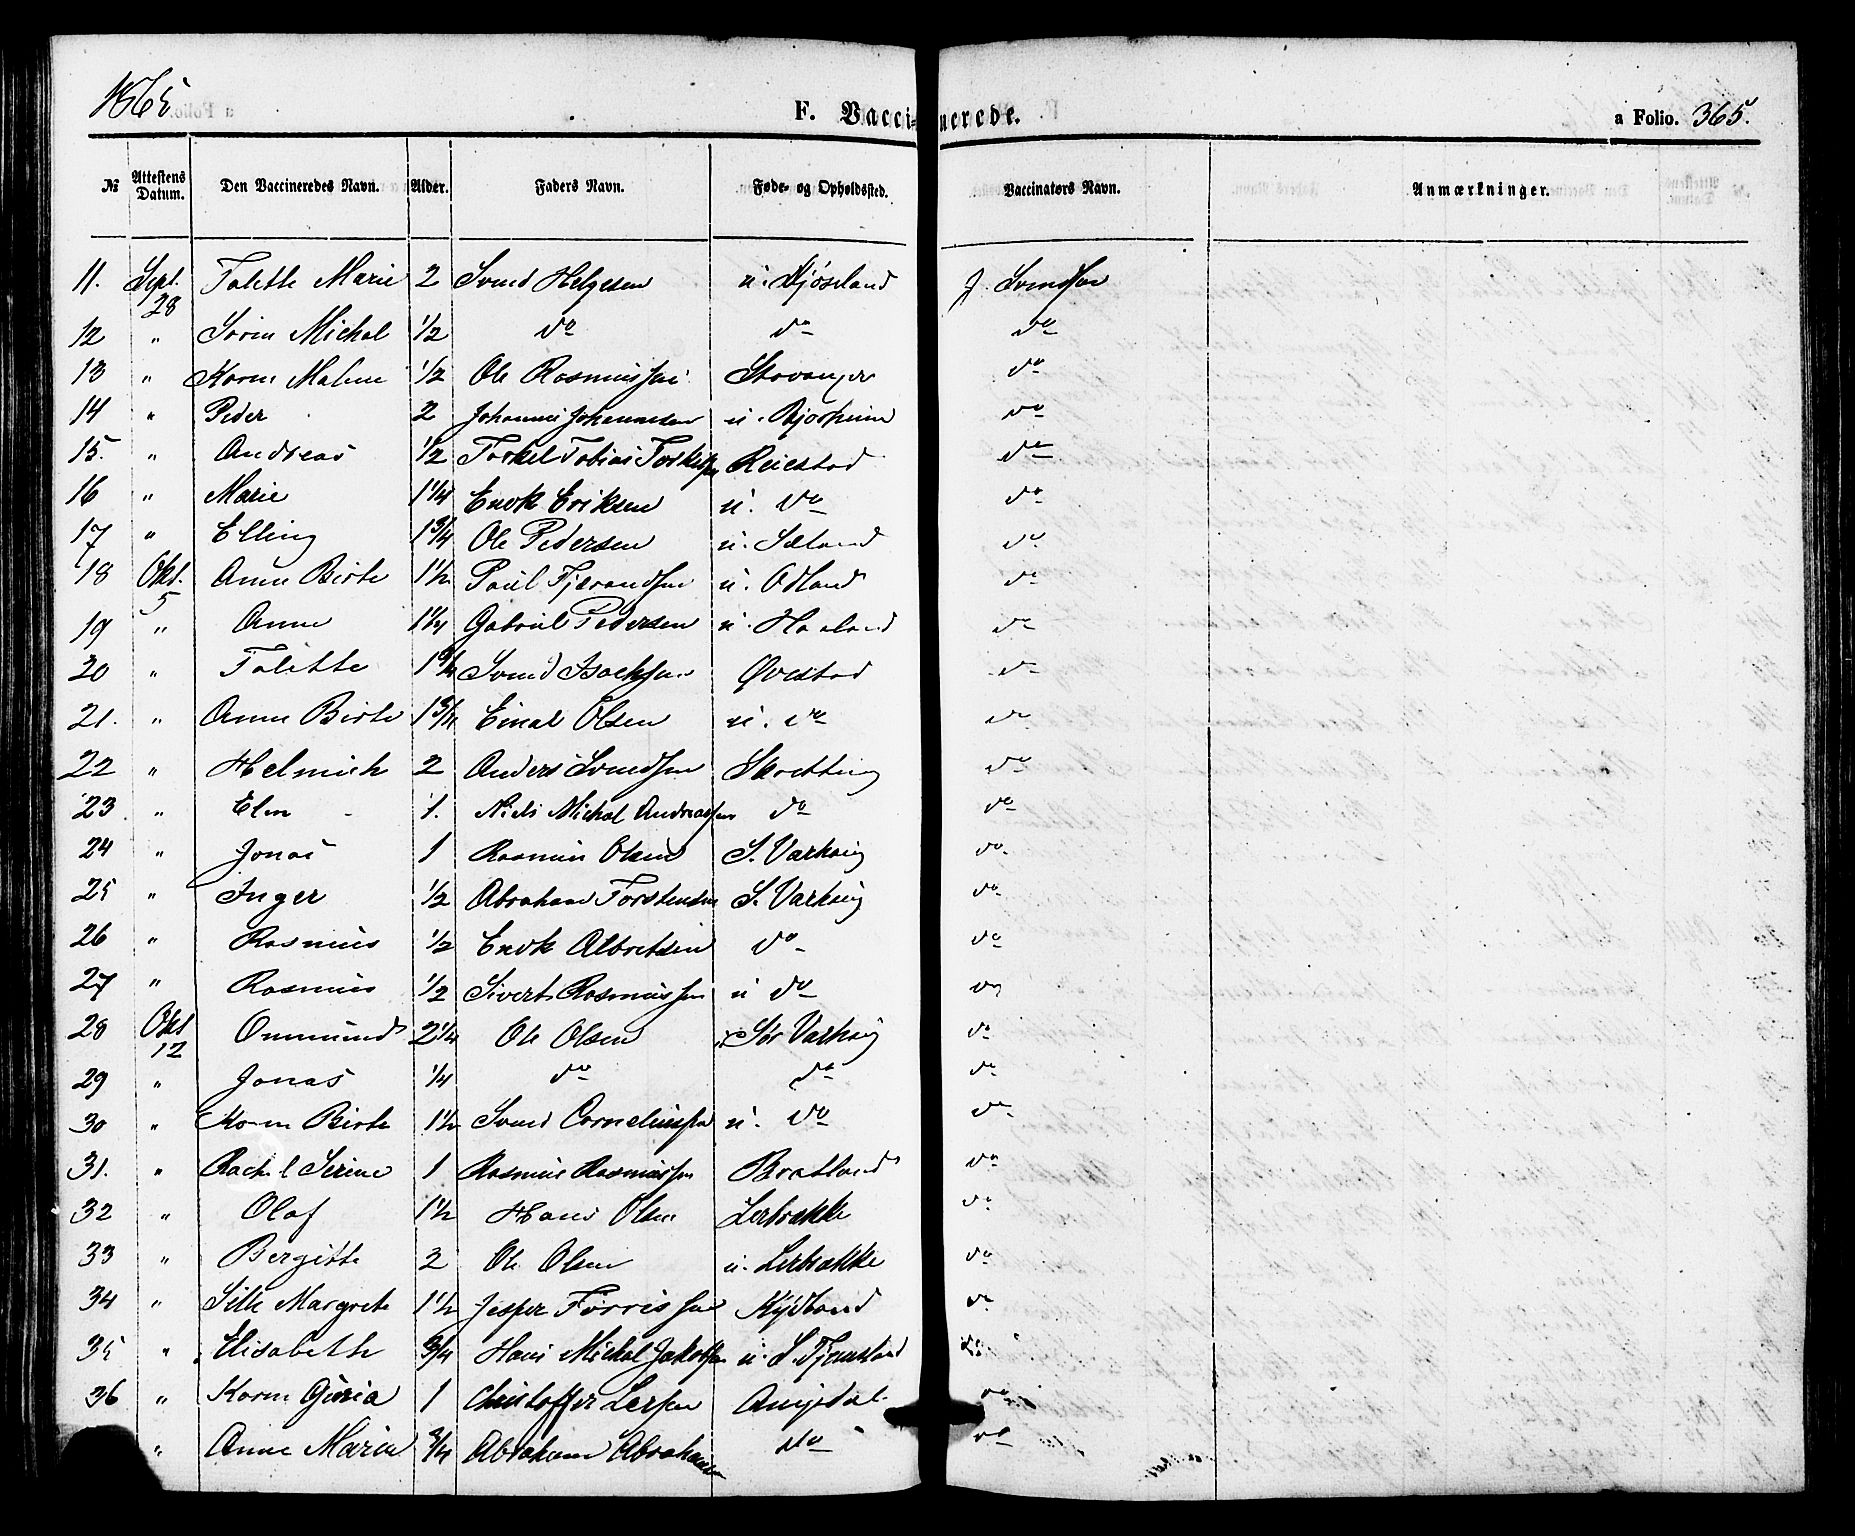 1865
F. Vaccinerede.
a Folio. 365.
№ Attestens Datum. Den Vaccineredes Navn. Alder. Faders Navn. Føde- og Opholdssted. Vaccinators Navn. Anmærkninger.
11. Sept. 28 Talette Marie 2 Svend Helgesen u. Kjøsland J. Svendsen
12 " Sørin Michal 1/2 do do do
13 " Karen Malene 1/2 Ole Rasmussen Stavanger do
14 " Peder 2 Johannes Johannesen u. Bjorheim do
15. " Andreas 1/2 Torkel Tobias Torkelsen Reiestad do
16 " Marie 1 1/4 Enok Eriksen u. do do
17 " Elling 1 3/4 Ole Pedersen u. Sæland do
18 Okt. 5 Anne Birte 1 1/2 Paul Tjerandsen u. Odland do
19 " Anne 1 1/4 Gabriel Pedersen u. Haaland do
20 " Talette 1 3/4 Svend Isaksen Øvestad do
21. " Anne Birte 1 3/4 Einar Olsen u. do do
22 " Helmich 2 Anders Svendsen Skretting do
23 " Elen 1. Niels Michal Andreassen do do
24 " Jonas 1 Rasmus Olsen S. Varhoug do
25 " Inger 1/2 Abraham Torstensen S. Varhoug do
26 " Rasmus 1/2 Enok Albretsen do do
27 " Rasmus 1/2 Sivert Rasmussen u do do
28 Okt 12 Ommund 2 1/4 Ole Olsen Sør Varhoug do
29 " Jonas 1/4 do do do
30 " Karen Birte 1 1/2 Svend Corneliussen u. do do
31. " Rachel Serine 1 Rasmus Rasmussen Bratland do
32 " Olaf 1 1/2 Hans Olsen Lerbrekke do
33 " Bergitte 2 Ole Olsen u. Lerbrække do
34 " Silla Margrete 1 1/2 Jesper Tørrissen Kydland do
35 " Elisabeth 3/4 Hans Michal Jakobsen u. L. Tjemsland do
36 " Karen Guria 1 Christoffer Larsen Aniksdal do
" Anne Marie 3/4 Abraham Abrahamsen do do